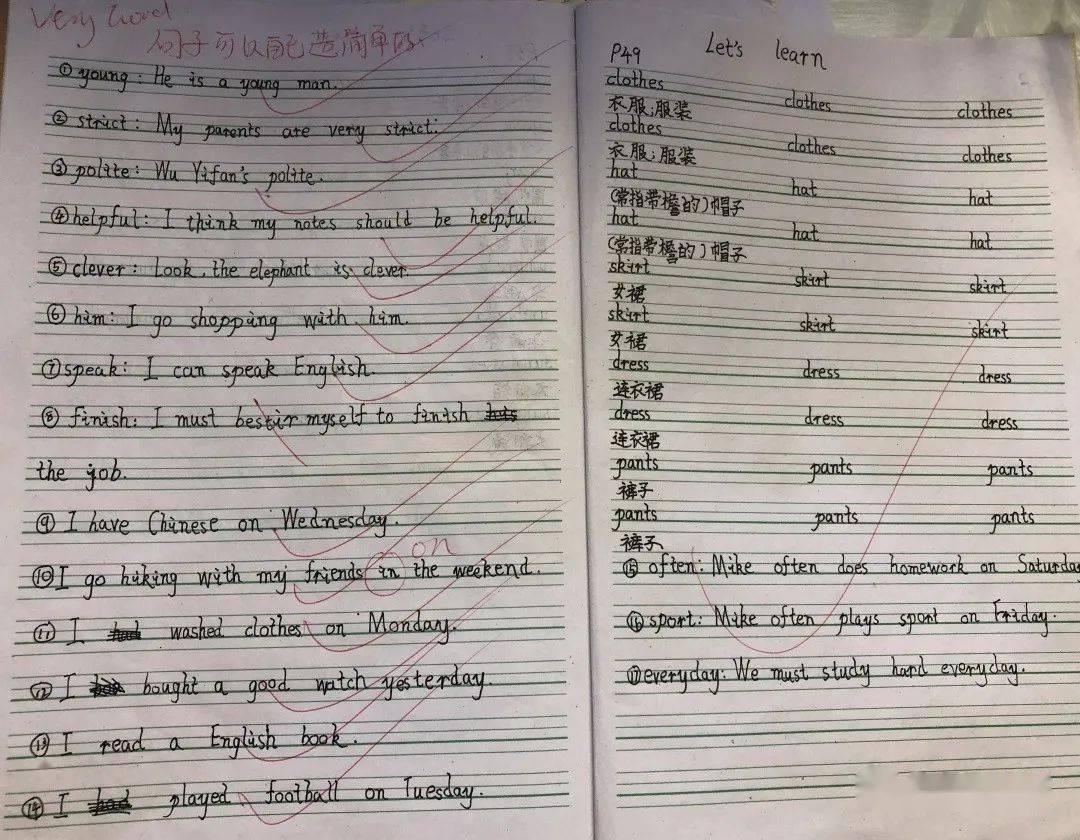 Very Good
句子可以自己造简单的
① young: He is a young man.
② strict: My parents are very strict.
③ polite: Wu Yifan's polite.
④ helpful: I think my notes should be helpful.
⑤ clever: Look, the elephant is clever.
⑥ him: I go shopping with him.
⑦ speak: I can speak English.
⑧ finish: I must bestir myself to finish
the job.
⑨ I have Chinese on Wednesday.
on
⑩ I go hiking with my friends in the weekend.
⑪ I washed clothes on Monday.
⑫ I bought a good watch yesterday.
⑬ I read a English book.
⑭ I played football on Tuesday.
P49 Let's learn
clothes clothes clothes
衣服;服装
clothes clothes clothes
衣服;服装
hat hat hat
(常指带檐的)帽子
hat hat hat
(常指带檐的)帽子
skirt skirt skirt
女裙
skirt skirt skirt
女裙
dress dress dress
连衣裙
dress dress dress
连衣裙
pants pants pants
裤子
pants pants pants
裤子
⑮ often: Mike often does homework on Saturday
⑯ sport: Mike often plays sport on Friday.
⑰ everyday: We must study hard everyday.